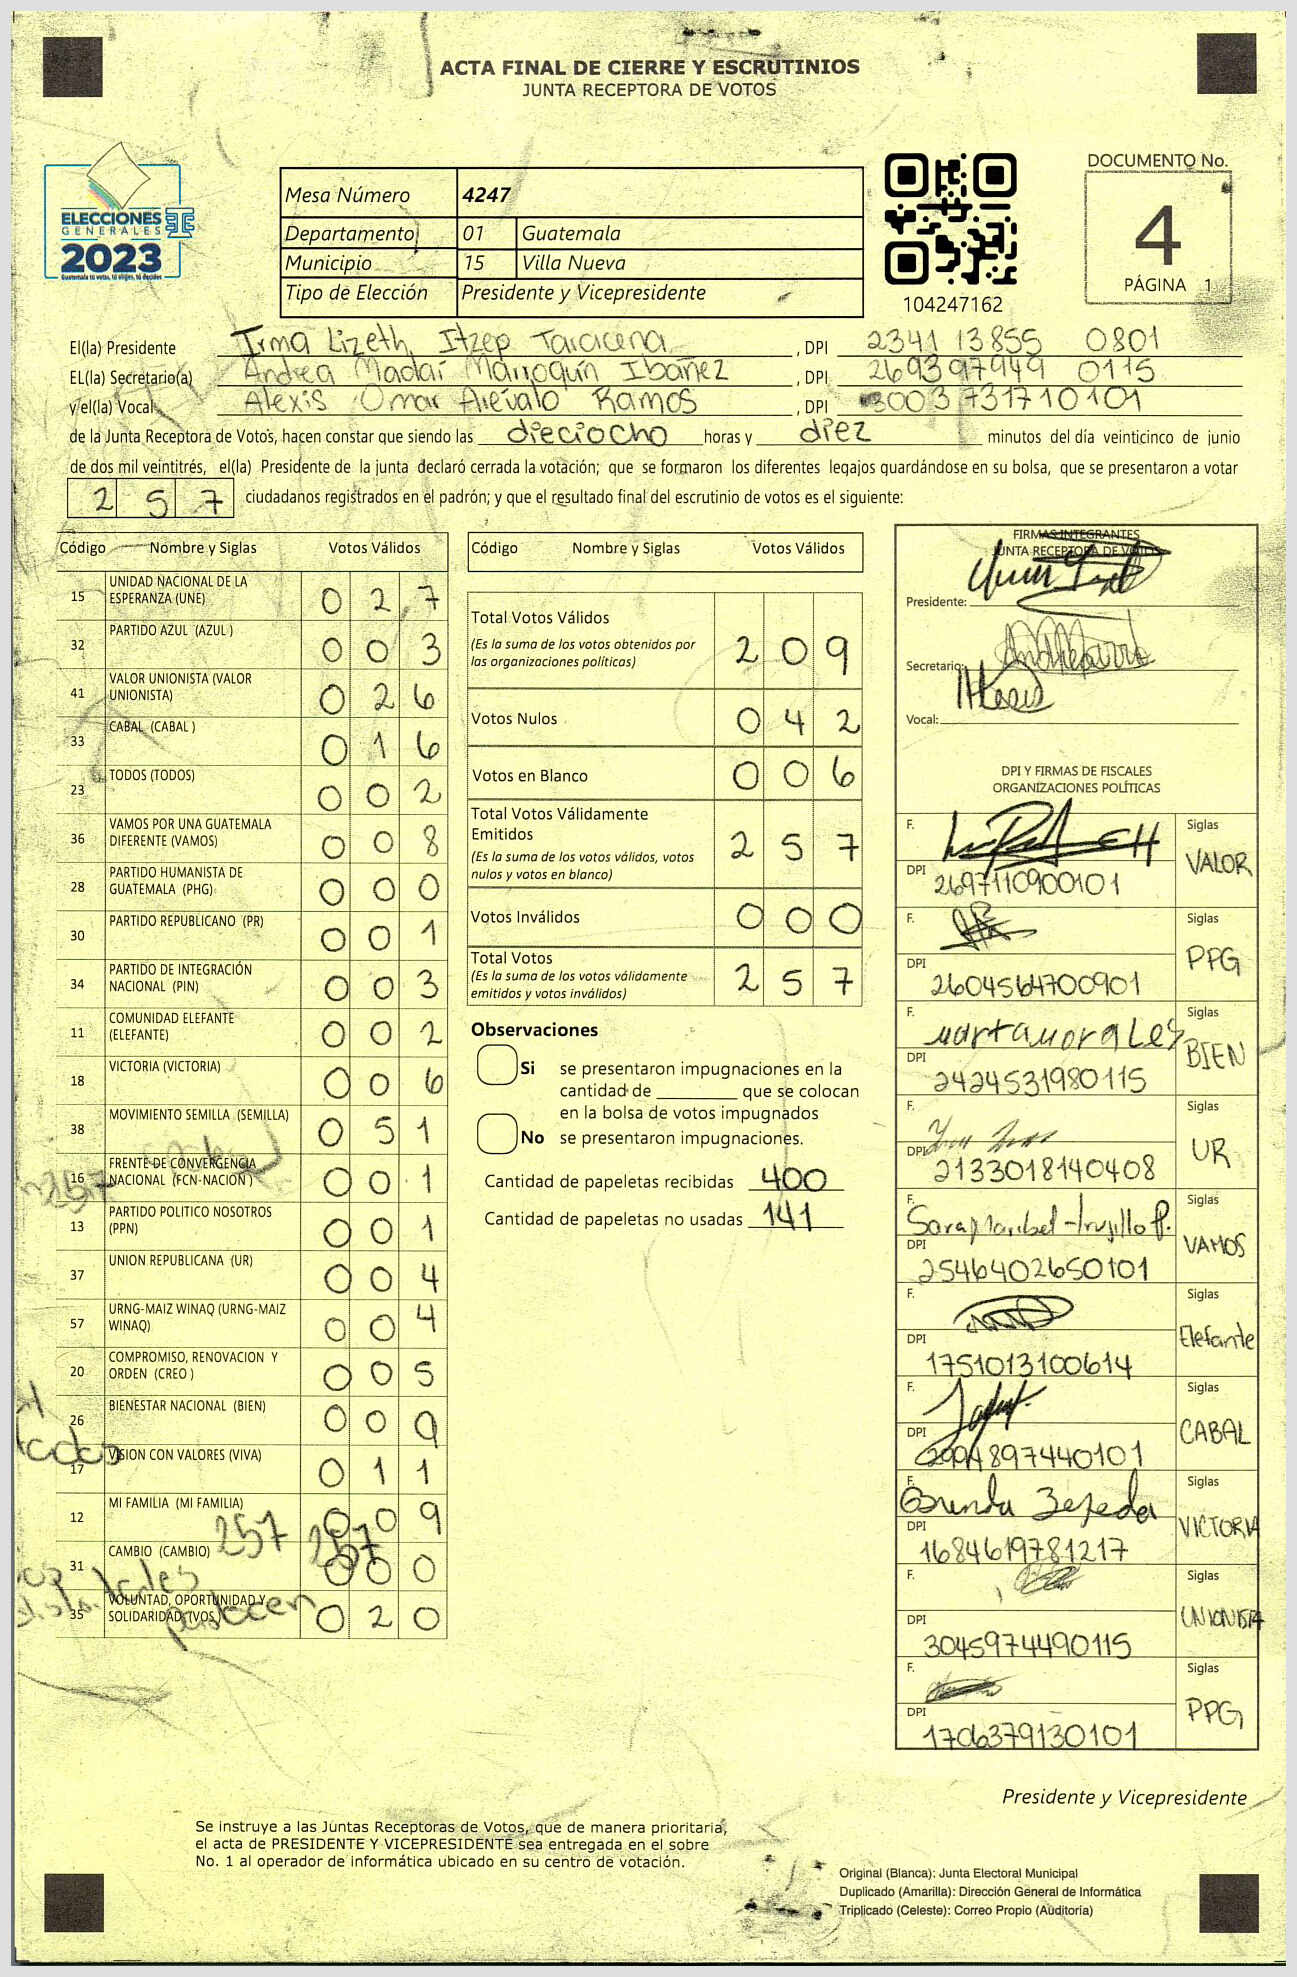 ACTA FINAL DE CIERRE Y ESCRUTINIOS
JUNTA RECEPTORA DE VOTOS
ELECCIONES
GENERALES
2023
Guatemala tú votas, tú eliges, tú decides
Mesa Número 4247
Departamento 01 Guatemala
Municipio 15 Villa Nueva
Tipo de Elección Presidente y Vicepresidente
104247162
DOCUMENTO No.
4
PÁGINA 1
El(la) Presidente Irma Lizeth Itzep Taracena, DPI 2341 13855 0801
EL(la) Secretario(a) Andrea Madaí Marroquín Ibañez, DPI 269397949 0115
y el(la) Vocal Alexis Omar Arévalo Ramos, DPI 3003731710101
de la Junta Receptora de Votos, hacen constar que siendo las dieciocho horas y diez minutos del día veinticinco de junio
de dos mil veintitrés, el(la) Presidente de la junta declaró cerrada la votación; que se formaron los diferentes legajos quardándose en su bolsa, que se presentaron a votar
257 ciudadanos registrados en el padrón; y que el resultado final del escrutinio de votos es el siguiente:
Código Nombre y Siglas Votos Válidos
15 UNIDAD NACIONAL DE LA ESPERANZA (UNE) 0 2 7
32 PARTIDO AZUL (AZUL ) 0 0 3
41 VALOR UNIONISTA (VALOR UNIONISTA) 0 2 6
33 CABAL (CABAL ) 0 1 6
23 TODOS (TODOS) 0 0 2
36 VAMOS POR UNA GUATEMALA DIFERENTE (VAMOS) 0 0 8
28 PARTIDO HUMANISTA DE GUATEMALA (PHG) 0 0 0
30 PARTIDO REPUBLICANO (PR) 0 0 1
34 PARTIDO DE INTEGRACIÓN NACIONAL (PIN) 0 0 3
11 COMUNIDAD ELEFANTE (ELEFANTE) 0 0 2
18 VICTORIA (VICTORIA) 0 0 6
38 MOVIMIENTO SEMILLA (SEMILLA) 0 5 1
16 FRENTE DE CONVERGENCIA NACIONAL (FCN-NACION ) 0 0 1
13 PARTIDO POLITICO NOSOTROS (PPN) 0 0 1
37 UNION REPUBLICANA (UR) 0 0 4
57 URNG-MAIZ WINAQ (URNG-MAIZ WINAQ) 0 0 4
20 COMPROMISO, RENOVACION Y ORDEN (CREO ) 0 0 5
26 BIENESTAR NACIONAL (BIEN) 0 0 9
17 VISION CON VALORES (VIVA) 0 1 1
12 MI FAMILIA (MI FAMILIA) 0 0 9
257 257
31 CAMBIO (CAMBIO) 0 0 0
35 VOLUNTAD, OPORTUNIDAD Y SOLIDARIDAD (VOS ) 0 2 0
257
Código Nombre y Siglas Votos Válidos
Total Votos Válidos 2 0 9
(Es la suma de los votos obtenidos por
las organizaciones políticas)
Votos Nulos 0 4 2
Votos en Blanco 0 0 6
Total Votos Válidamente
Emitidos 2 5 7
(Es la suma de los votos válidos, votos
nulos y votos en blanco)
Votos Inválidos 0 0 0
Total Votos 2 5 7
(Es la suma de los votos válidamente
emitidos y votos inválidos)
Observaciones
Si se presentaron impugnaciones en la
cantidad de ________ que se colocan
en la bolsa de votos impugnados
No se presentaron impugnaciones.
Cantidad de papeletas recibidas 400
Cantidad de papeletas no usadas 141
FIRMAS INTEGRANTES
JUNTA RECEPTORA DE VOTOS
Presidente:
Secretario:
Vocal:
DPI Y FIRMAS DE FISCALES
ORGANIZACIONES POLÍTICAS
F. Siglas
DPI 2697110900101 VALOR
F. Siglas
DPI 2604564700901 PPG
F. Marta Morales Siglas
DPI 2424531980115 BIEN
F. Siglas
DPI 2133018140408 UR
F. Sara Maribel Trujillo P. Siglas
DPI 2546402650101 VAMOS
F. Siglas
DPI 1751013100614 Elefante
F. Siglas
DPI 2994897440101 CABAL
F. Brenda Zepeda Siglas
DPI 1684619781217 VICTORIA
F. Siglas
DPI 3045974490115 UNIONISTA
F. Siglas
DPI 1706379130101 PPG
Presidente y Vicepresidente
Se instruye a las Juntas Receptoras de Votos, que de manera prioritaria,
el acta de PRESIDENTE Y VICEPRESIDENTE sea entregada en el sobre
No. 1 al operador de informática ubicado en su centro de votación.
Original (Blanca): Junta Electoral Municipal
Duplicado (Amarilla): Dirección General de Informática
Triplicado (Celeste): Correo Propio (Auditoría)